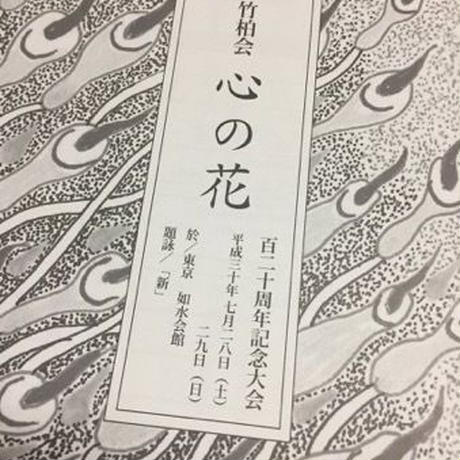 竹柏会
心の花
百二十周年記念大会
平成三十年 七月二八日（土）
二九日（日）
於／東京 如水会館
題詠／「新」